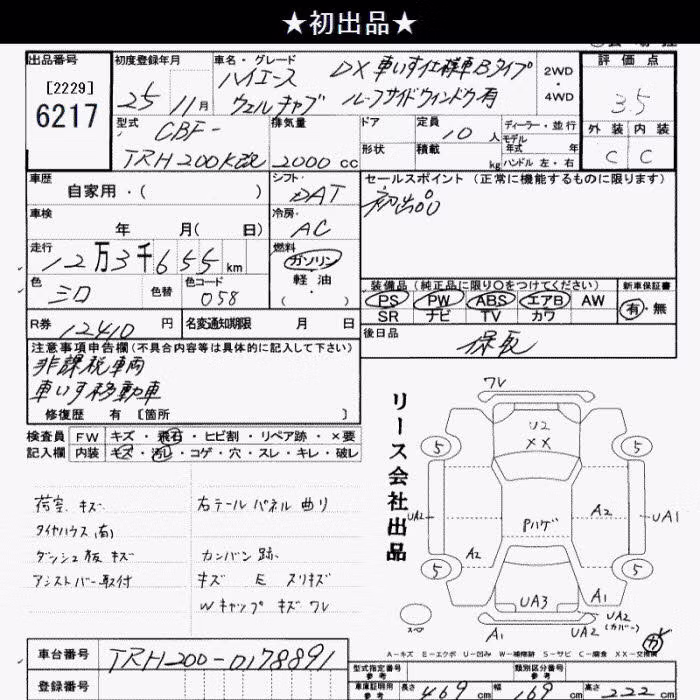 ★初出品★
出品番号
[2229]
6217
初度登録年月
25 11月
車名・グレード
ハイエース DX 車いす仕様車Bタイプ
ウェルキャブ ルーフサイドウィンドウ有
2WD
・
4WD
評価点
3.5
外装 内装
C C
型式
CBF-
TRH200K改
排気量
2000cc
ドア
形状
定員
10人
積載
kg
ディーラー・並行
モデル
年式 年
ハンドル 左・右
車歴
自家用・( )
シフト
DAT
セールスポイント (正常に機能するものに限ります)
初出品
車検
年 月( 日)
冷房
AC
走行
12万3千655km
燃料
ガソリン
軽油
( )
色
シロ
色替
色コード
058
装備品 (純正品に限り○をつけてください)
PS PW ABS エアB AW
SR ナビ TV カワ
新車保証書
有・無
R券
12410円
名変通知期限 月 日
後日品
保取
注意事項申告欄(不具合内容等は具体的に記入して下さい)
非課税車両
車いす移動車
修復歴 有 [箇所 ]
検査員
記入欄
FW キズ・飛石・ヒビ割・リペア跡・×要
内装 キズ・汚レ・コゲ・穴・スレ・キレ・破レ
荷室 キズ
タイヤハウス(南)
ダッシュ板 キズ
アシストバー取付
右テール パネル 曲リ
カンバン跡
キズ E スリキズ
Wキャップ キズ ワレ
リース会社出品
ワレ
U2
XX
5
5
UA2
A2
UA1
Pハゲ
A2
5
5
UA3
A1
A1
UA2
UA2
(カバー)
A-キズ E-エクボ U-凹み W-補修跡 S-サビ C-腐食 XX-交換済
車台番号
TRH200-0178891
登録番号
型式指定番号
参考
類別区分番号
参考
車庫証明用
参考
長さ 469cm
幅 169cm
高さ 222cm